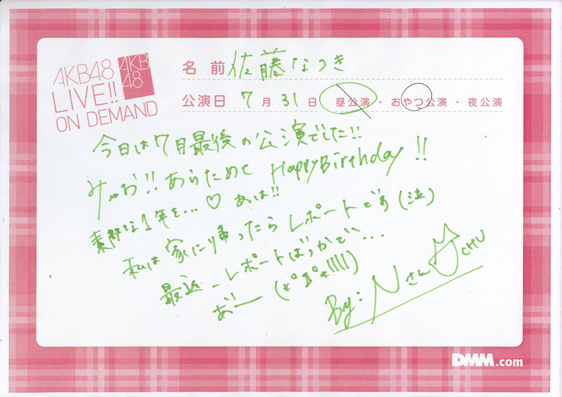 AKB48
LIVE!!
ON DEMAND
AKB
48
名前 佐藤なつき
公演日 7月31日 昼公演・おやつ公演・夜公演
今日は7月最後の公演でした!!
みゃお!!あらためて HappyBirthday!!
素敵な1年を…♡ あは!!
私は家に帰ったらレポートです(泣)
最近レポートばっかで…
By:Nさん CHU
DMM.com